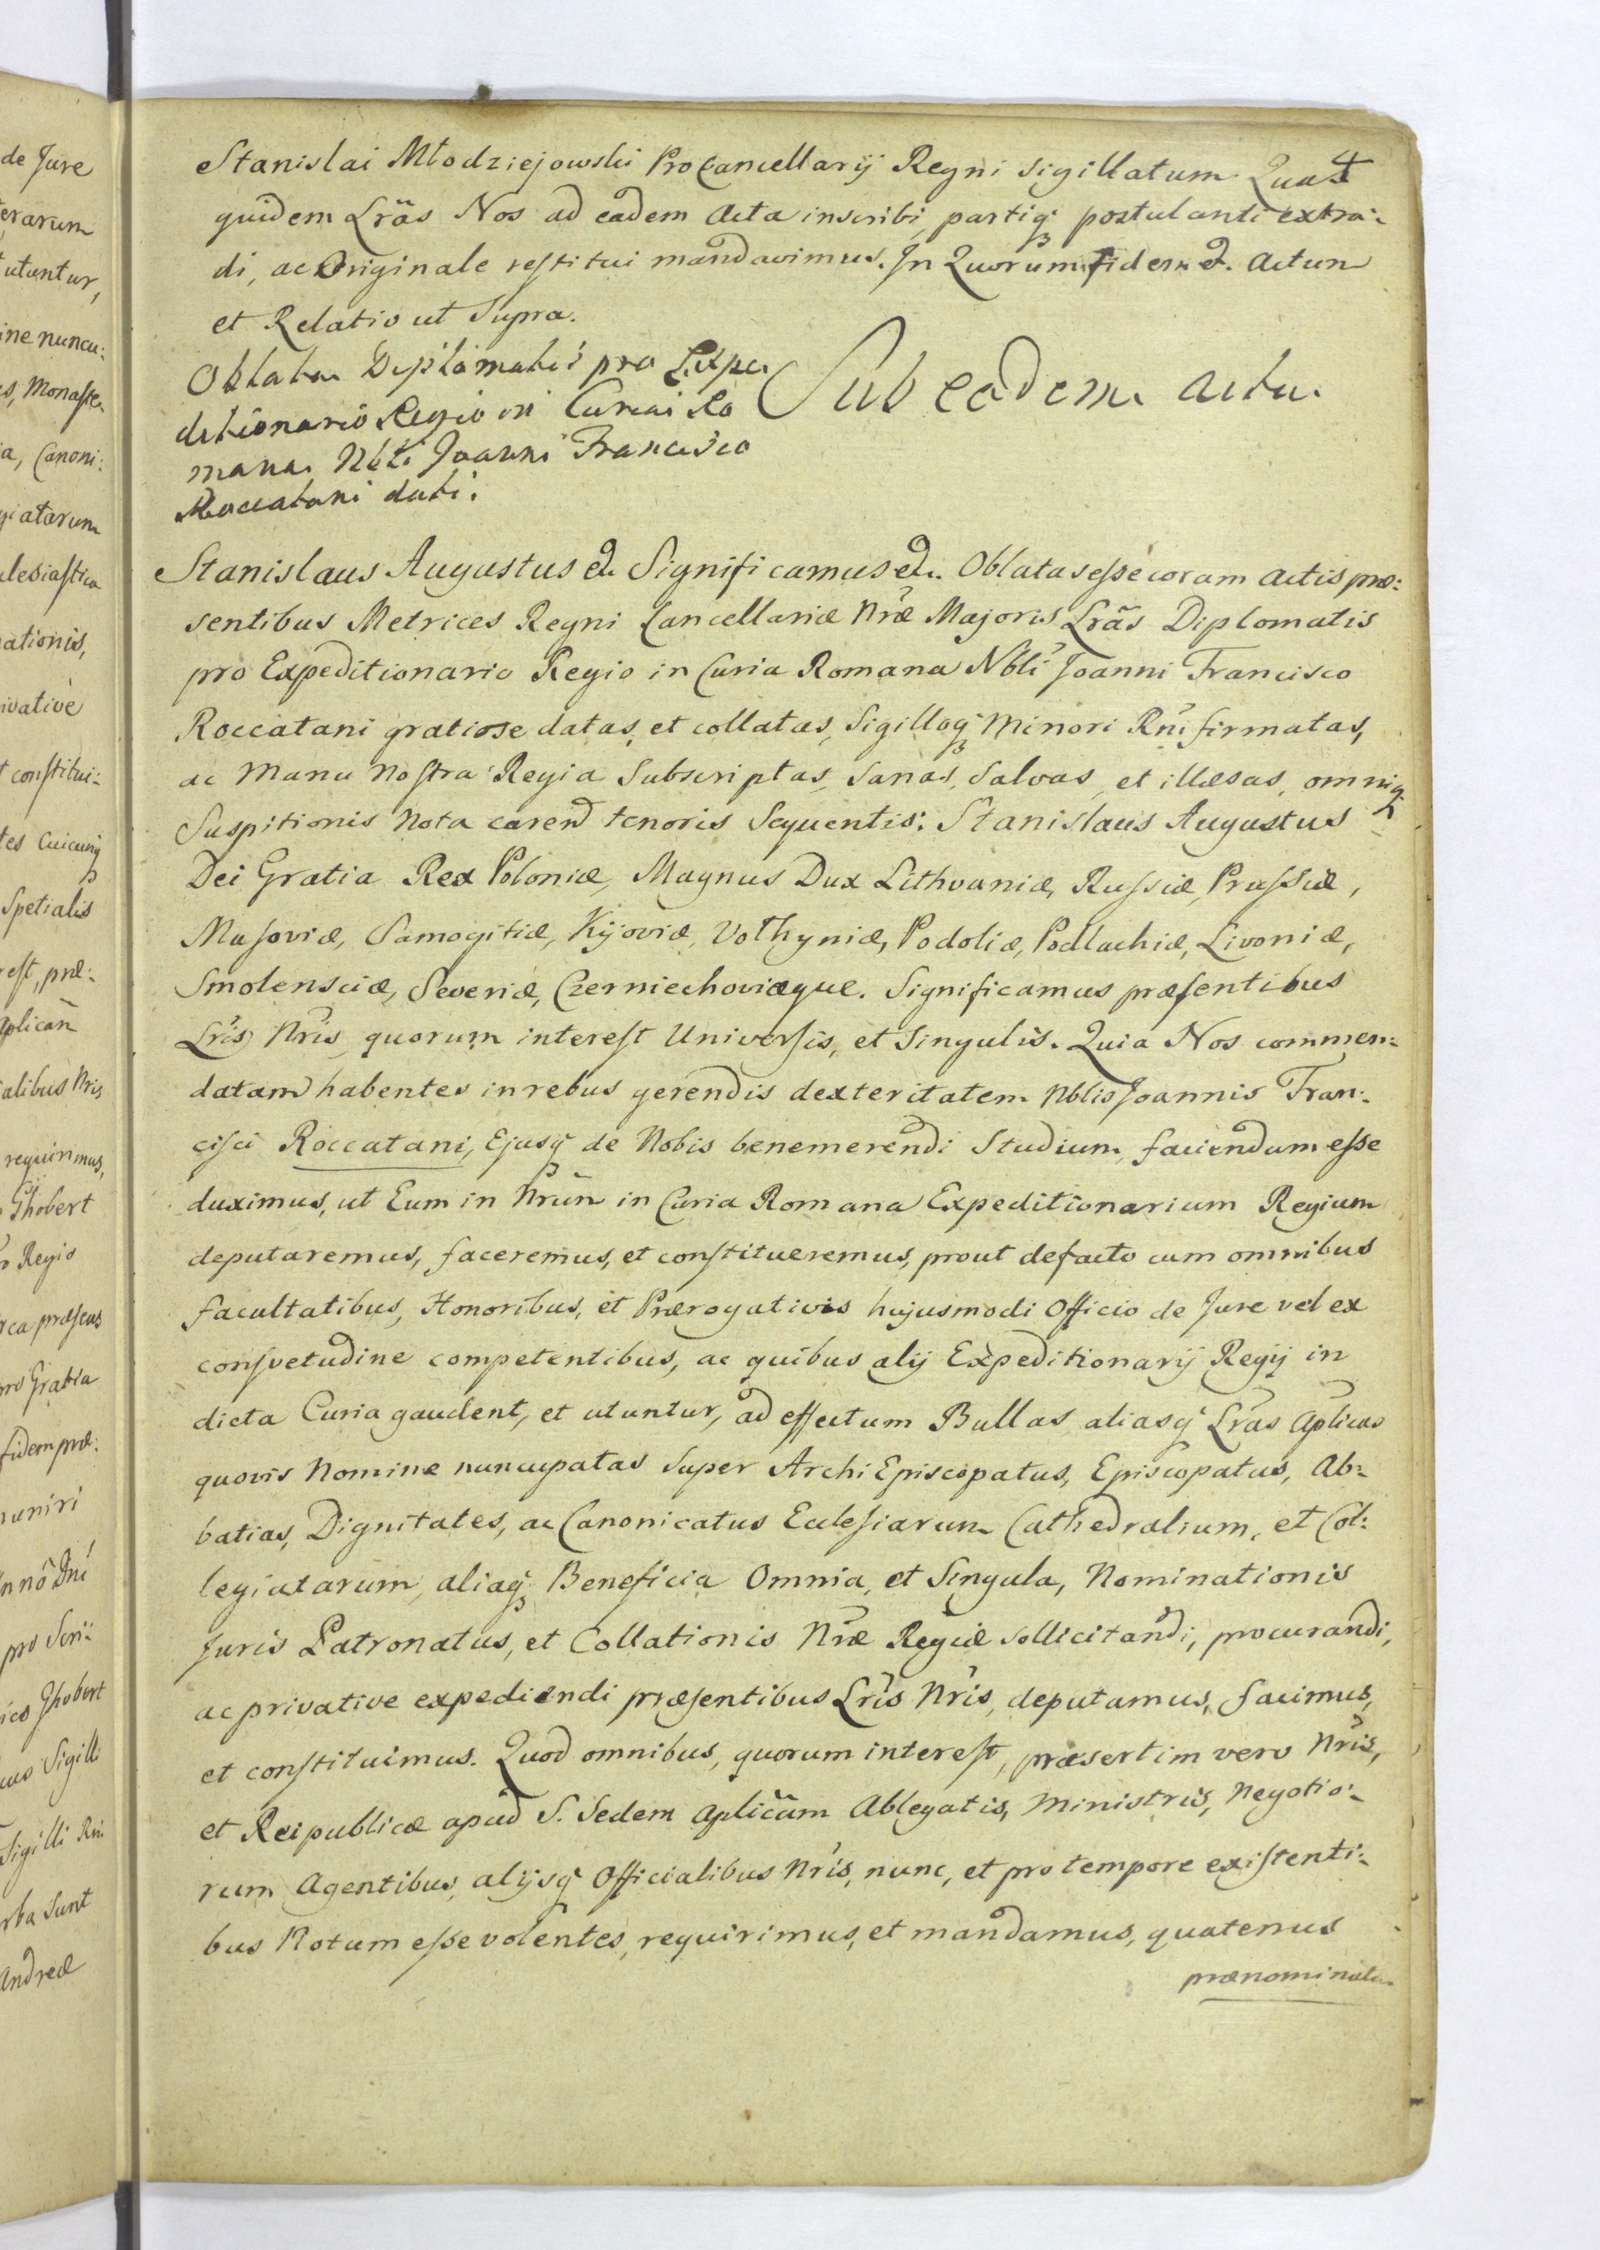 4
Stanislai Młodziejowski ProCancellarij Regni sigillatum Quas
quidem Lrãs Nos ad eadem Acta inscribi, partiq̃ postulanti extra:
di, ac Originale restitui mandavimus. In Quorum fidem &. Actum
et Relatio ut Supra.
Oblata Diplomatis pro Expe
ditionario Regio in Curia Ro
mana Nbli Joanni Francisco
Roccatani dati.
Sub eadem actu.
Stanislaus Augustus &. Significamus &. Oblatas esse coram Actis præ:
sentibus Metrices Regni Cancellariæ Nræ Majoris Lrãs Diplomatis
pro Expeditionario Regio in Curia Romana Nbli Joanni Francisco
Roccatani gratiose datas, et collatas, Sigilloq̃ Minori Rni firmatas,
ac Manu Nostra Regia Subscriptas, Sanas, Salvas, et illæsas, omniq̃
Suspitionis Nota caren̄ tenoris Sequentis: Stanislaus Augustus
Dei Gratia Rex Poloniæ, Magnus Dux Lithvaniæ, Russiæ, Prussiæ,
Masoviæ, Samogitiæ, Kijoviæ, Volhyniæ, Podoliæ, Podlachiæ, Livoniæ,
Smolensciæ, Severiæ, Czerniechoviæque. Significamus præsentibus
Lris Nris, quorum interest Universis, et Singulis. Quia Nos commen:
datam habentes in rebus gerendis dexteritatem Nblis Joannis Fran:
cisci Roccatani, Ejusq̃ de Nobis benemerendi Studium, faciendum esse
duximus, ut Eum in Nrūn in Curia Romana Expeditionarium Regium
deputaremus, faceremus, et constitueremus, prout defacto cum omnibus
facultatibus, Honoribus, et Prærogativis hujusmodi Officio de Jure vel ex
consvetudine competentibus, ac quibus alij Expeditionarij Regij in
dicta Curia gaudent, et utuntur, ad effectum Bullas aliasq̃ Lrãs Aplicas
quovis Nomine nuncupatas Super ArchiEpiscopatus, Episcopatus, Ab:
batias, Dignitates, ac Canonicatus Ecclesiarum Cathedralium, et Col:
legiatarum, aliaq̃ Beneficia Omnia, et Singula, Nominationis
Juris Patronatus, et Collationis Nræ Regiæ sollicitandi, procurandi,
ac privative expediendi præsentibus Lris Nris, deputamus, facimus,
et constituimus. Quod omnibus, quorum interest, præsertim vero Nris,
et Reipublicæ apud S. Sedem Aplicãm Ablegatis, Ministris, Negotio:
rum Agentibus, alijsq̃ Officialibus Nris, nunc, et pro tempore existenti:
bus Notum esse volentes, requirimus, et mandamus, quatenus
prænominatu